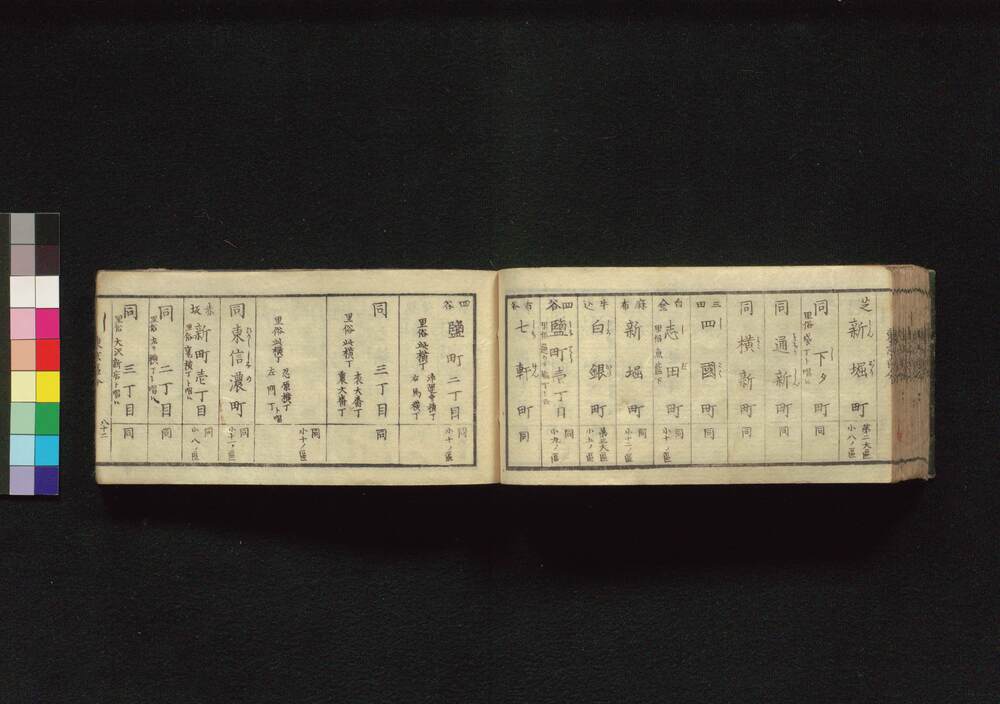 芝 新堀町
第二大區
小八ノ區
同 下タ町
里俗 袋丁ト唱フ
同
同 通新町
同
同 横新町
同
三田 四國町
同
白金 志田町
里俗 魚籃下
同
小十ノ區
麻布 新堀町
同
小十二ノ區
牛込 白銀町
第三大區
小五ノ區
四谷 鹽町壱丁目
同
小九ノ區
市谷 七軒町
同
四谷 鹽町二丁目
同
小十ノ區
里俗 此横丁
右馬横丁
同 三丁目
同
里俗 此横丁
表大番丁
裏大番丁
同
小十ノ區
里俗 此横丁
忍原横丁
左門丁ト唱
同 東信濃町
同
小十一ノ區
赤坂 新町壱丁目
同
小八ノ區
同 二丁目
同
同 三丁目
里俗 大沢新店ト唱フ
同
八十二